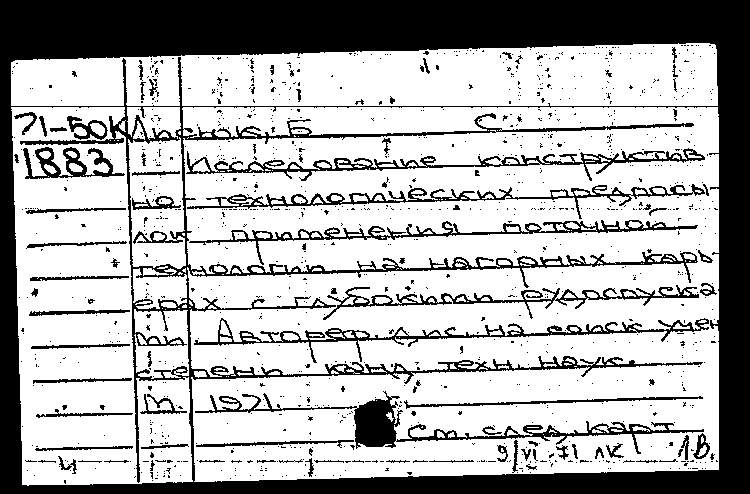 71-50К Лисюк, Б С.
1883 Исследование конструктив-
но-технологических предпосы-
лок применения поточной
технологии на нагорных карь-
ерах с глубокими рудоспуска-
ми. Автореф. дис. на соиск учен
степени канд. техн. наук.
М. 1971.
См. след. карт
9/VI-71 ЛК Л.В.
4